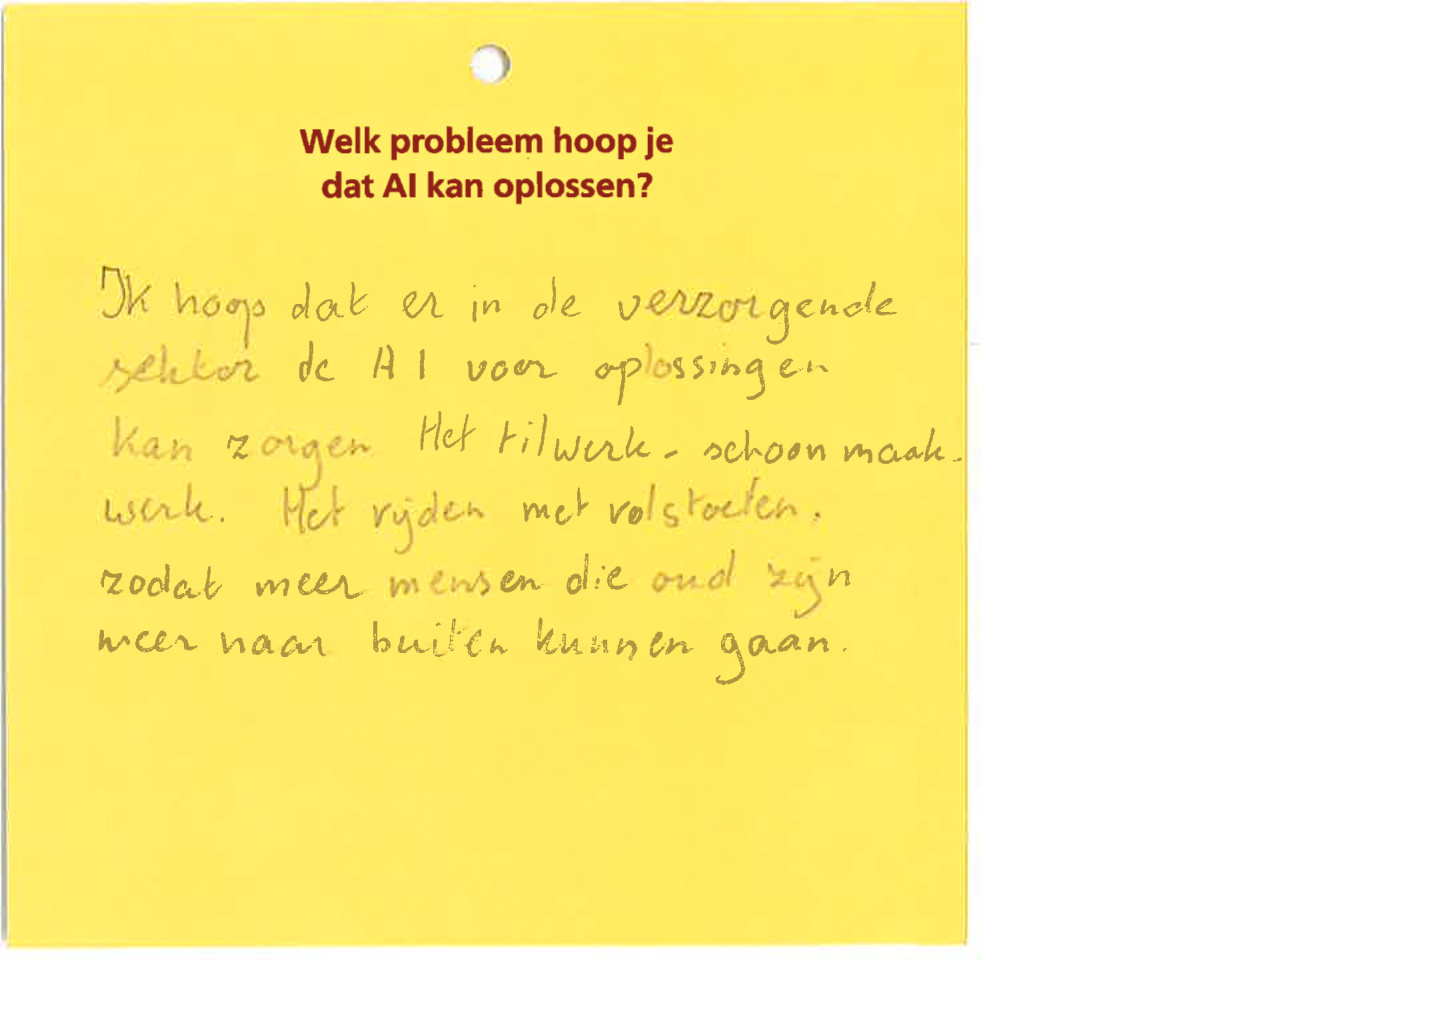 Welk probleem hoop je
dat AI kan oplossen?
Ik hoop dat er in de verzorgende
sektor de AI voor oplossingen
kan zorgen. Het tilwerk - schoonmaak-
werk. Het rijden met rolstoelen,
zodat meer mensen die oud zijn
meer naar buiten kunnen gaan.